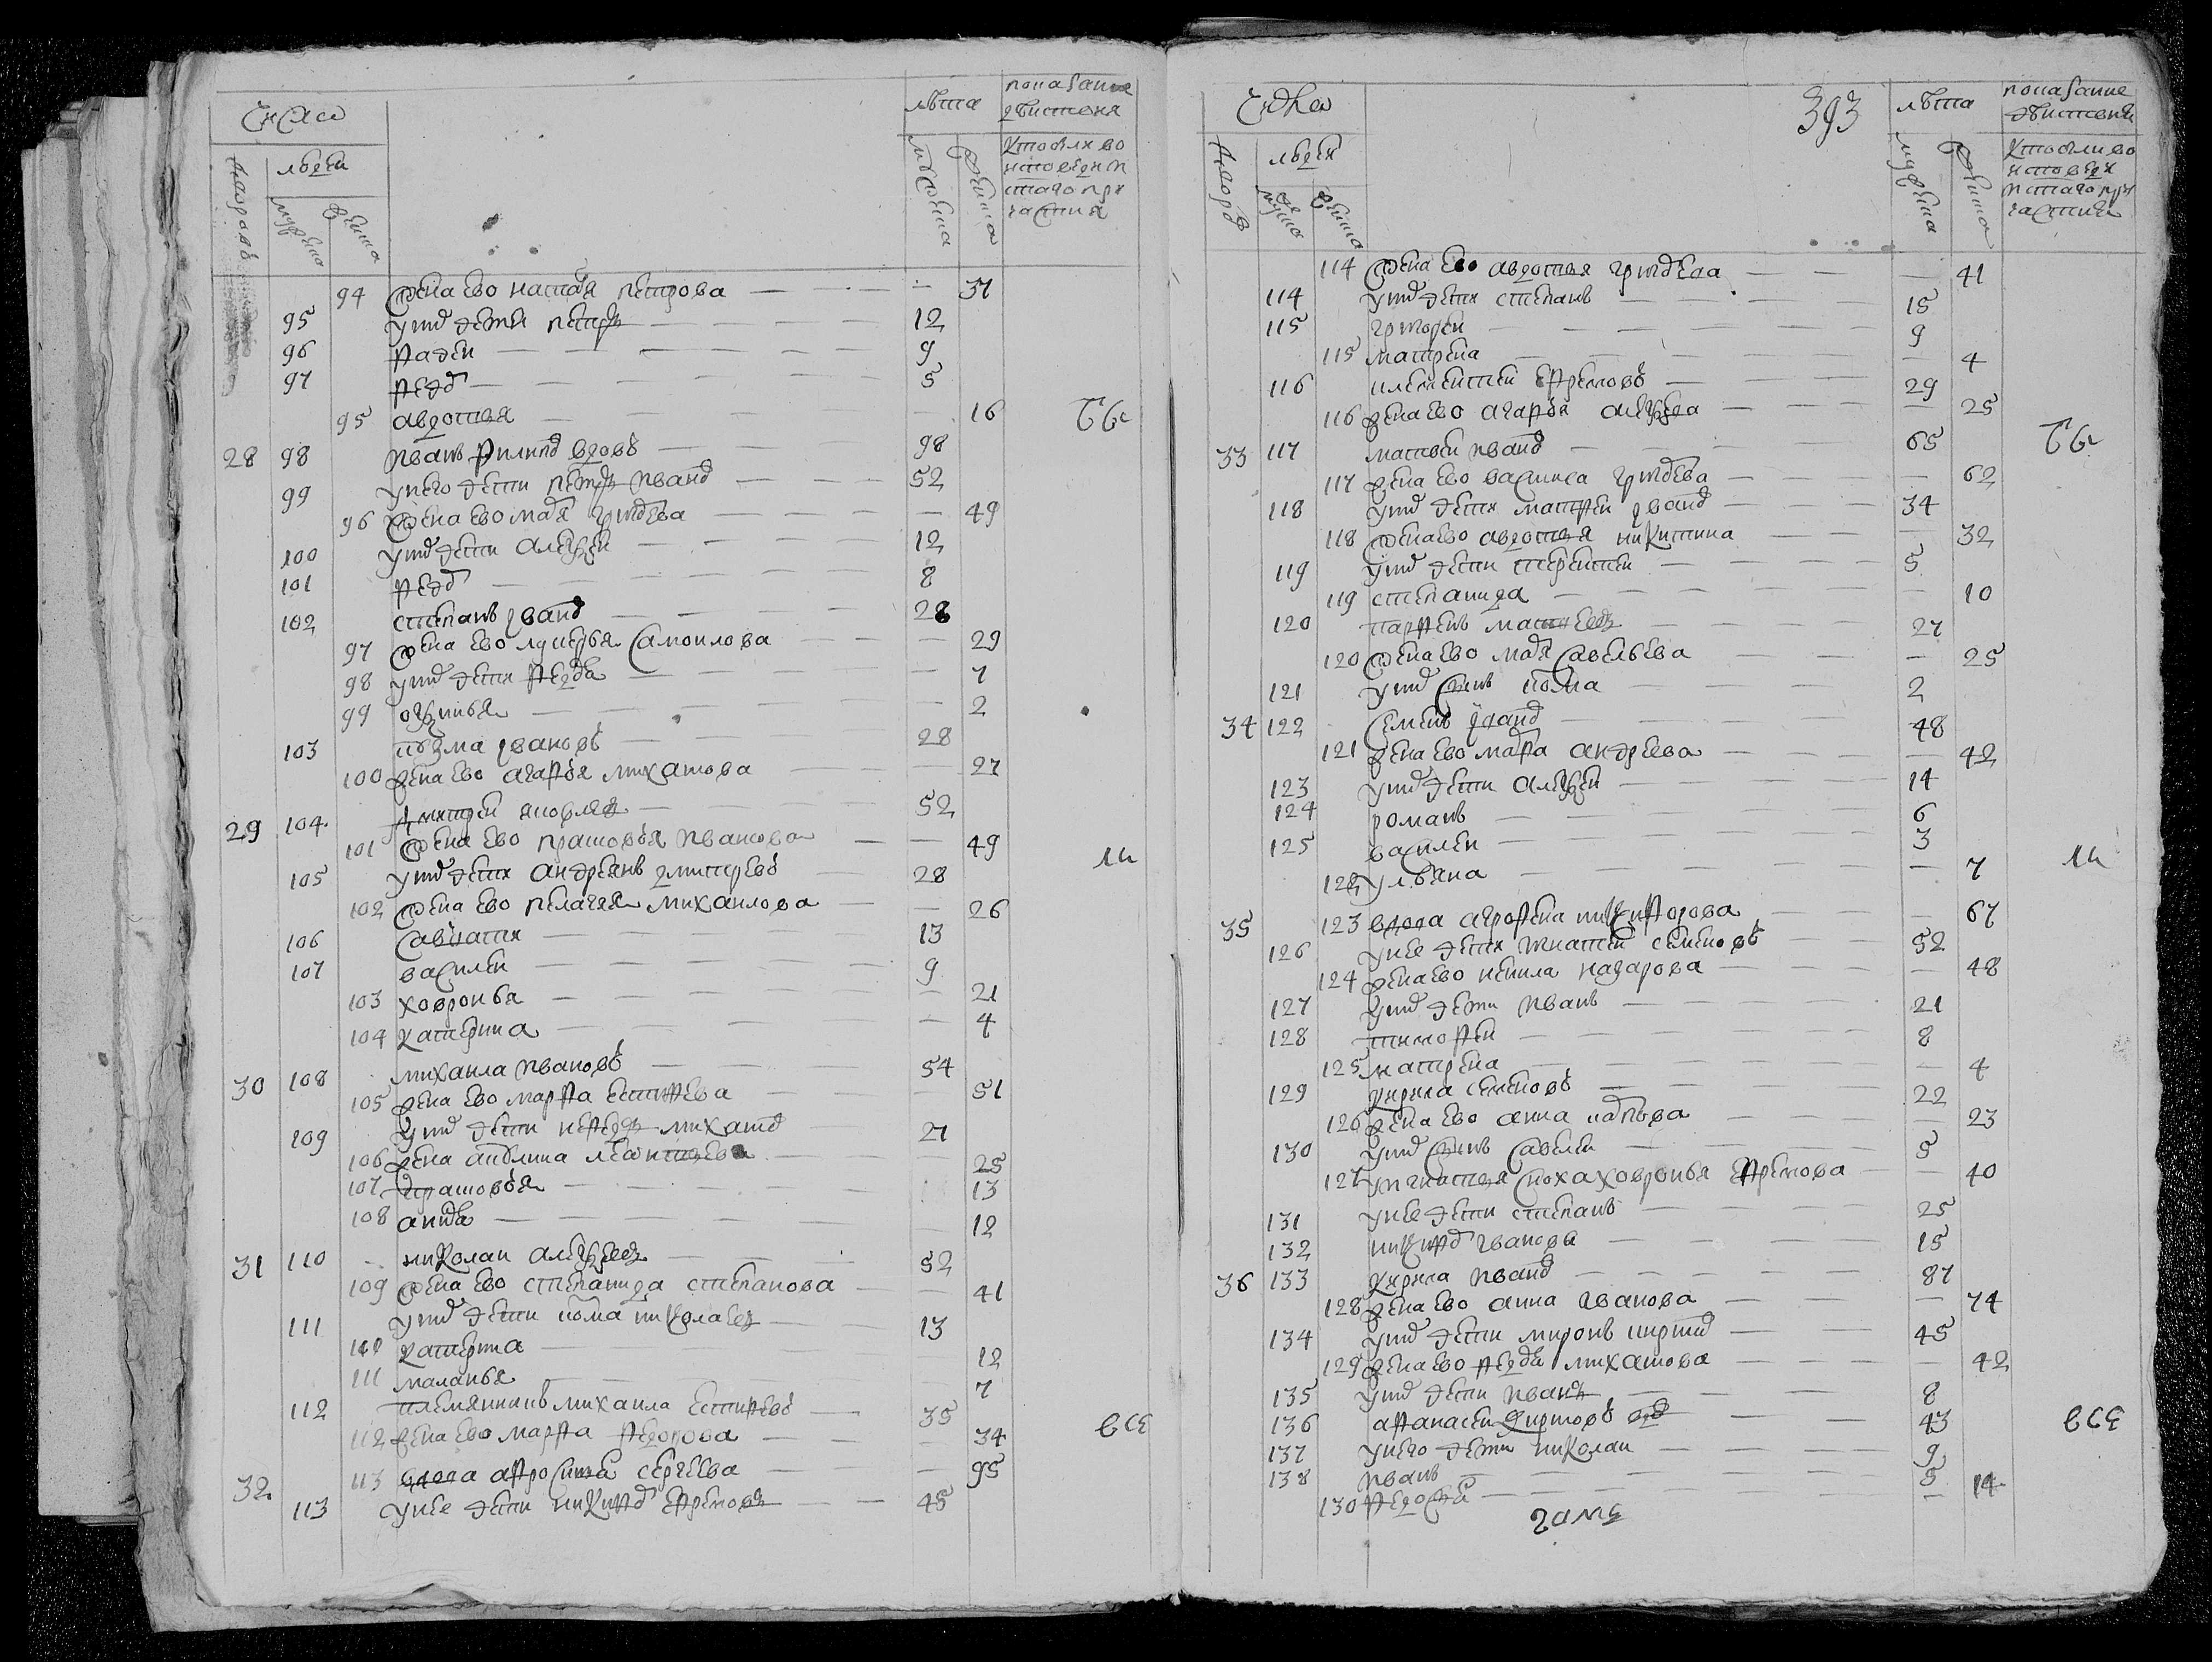 число
лѣта
показание
действия
дворовъ
людей
мужеска
женска
мужеска
женска
кто были во
исповеди и с
таго при
частия
94 жена ево настася петрова — 37
95 у них дети петръ — 12
96 фадей — 9
97 федо — 5
95 авдотья — 16
28 98 иванъ филипо вдовъ — 98
99 у него дети петръ ивано — 52
96 жена ево маря григорева — 49
100 у них дети алексей — 12
101 федо — 8
102 степанъ ивано — 28
97 жена ево лукерья самоилова — 29
98 у них дети федося — 7
99 2
103 козма ивановъ — 28
100 жена ево агафья михаилова — 27
29 104 дмитрей яковлев — 52
101 жена ево прасковья иванова — 49
105 у них дети андреянъ дмитревъ — 28
102 жена ево пелагея михаилова — 26
106 савватии — 13
107 василеи — 9
103 ховронья — 21
104 катерина — 4
30 108 михаила ивановъ — 54
105 жена ево марфа естифеева — 51
109 у них дети нефедъ михаило — 27
106 жена акулина леонтьева — 25
107 прасковья — 13
108 анна — 12
31 110 николаи алексеевъ — 52
109 жена ево степанида степанова — 41
111 у них дети кома николаевъ — 13
110 катерина — 12
111 маланья — 7
112 племянникъ михаила естифеевъ — 35
112 жена ево марфа федорова — 34
все
32 113 вдова афросинья сергеева — 95
113 у нее дети никифо ефремовъ — 45
число
393
лѣта
показание
действия
дворовъ
людей
мужеска
женска
мужеска
женска
кто были во
исповеди
и стаго при
частия
114 жена ево авдотья григорева — 41
114 у них дети степанъ — 15
115 григореи — 9
115 матрена — 4
116 клементей ефремовъ — 29
116 жена ево агафья алексеева — 25
33 117 матвеи ивано — 65
117 жена ево василиса григорева — 62
118 у них дети матфеи ивано — 34
118 жена ево авдотья никитина — 32
119 у них дети терентеи — 5
119 степанида — 10
120 парфенъ матвеевъ — 27
120 жена ево маря савельева — 25
121 у них сынъ кома — 2
34 122 семенъ ивано — 48
121 жена ево марфа андреева — 42
123 у них дети алексеи — 14
124 романъ — 6
125 василеи — 3
122 ульяна — 7
35 123 вдова агрофена никифорова — 67
126 у нее дети игнатеи семеновъ — 52
124 жена ево ненила назарова — 48
127 у них дети иванъ — 21
128 тимофеи — 8
125 матрена — 4
129 кирила семеновъ — 22
126 жена ево анна карпова — 23
130 у них сынъ савелеи — 5
127 у игнатья сноха ховронья ефремова — 40
131 у нее дети степанъ — 25
132 никифо иванова — 15
36 133 кирила ивано — 87
128 жена ево анна иванова — 74
134 у них дети миронъ кирило — 45
129 жена ево федося михаилова — 42
135 у них дети иванъ — 8
136 афанасеи кириловъ вдо — 43
все
137 у него дети николаи — 9
138 иванъ — 5
130 федося — 14